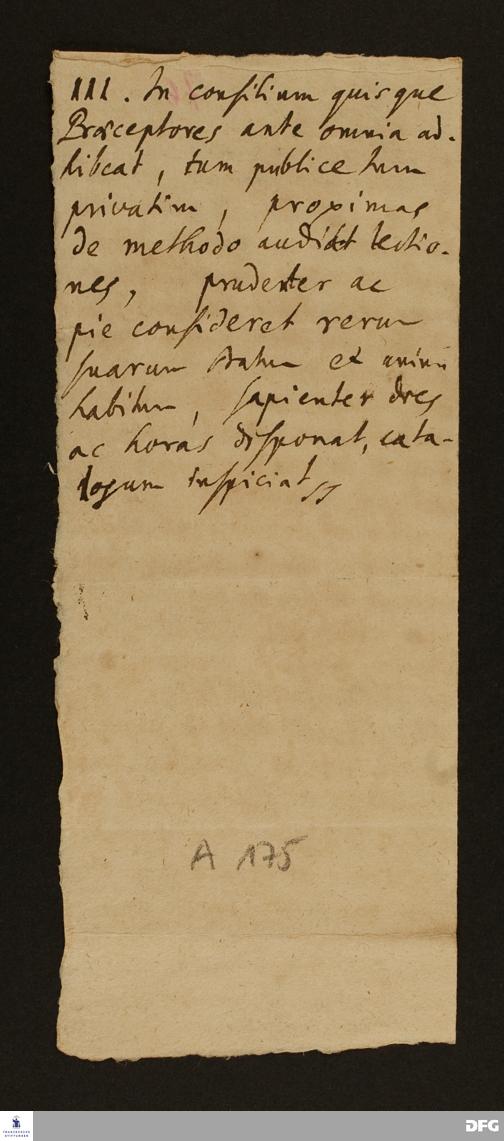 III. In consilium quisque
Præceptores ante omnia ad-
hibeat, tum publice tum
privatim, proximas
de methodo audiat lectio-
nes, prudenter ac
pie consideret rerum
suarum statum et animi
habitum, sapienter dies
ac horas disponat, cata-
logum inspiciat
A 175
FRANCKESCHE
STIFTUNGEN
DFG